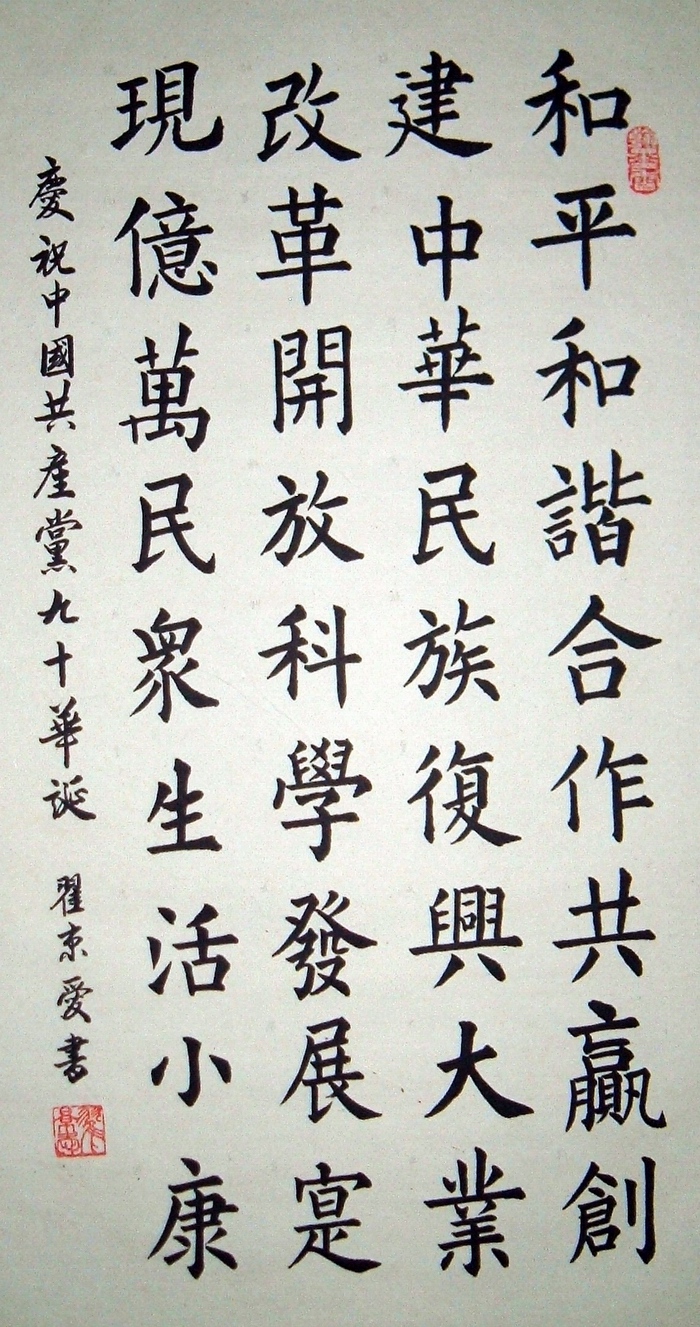 和平和諧合作共贏創
建中華民族復興大業
改革開放科學發展寔
現億萬民眾生活小康
慶祝中國共產黨九十華誕 翟京愛書